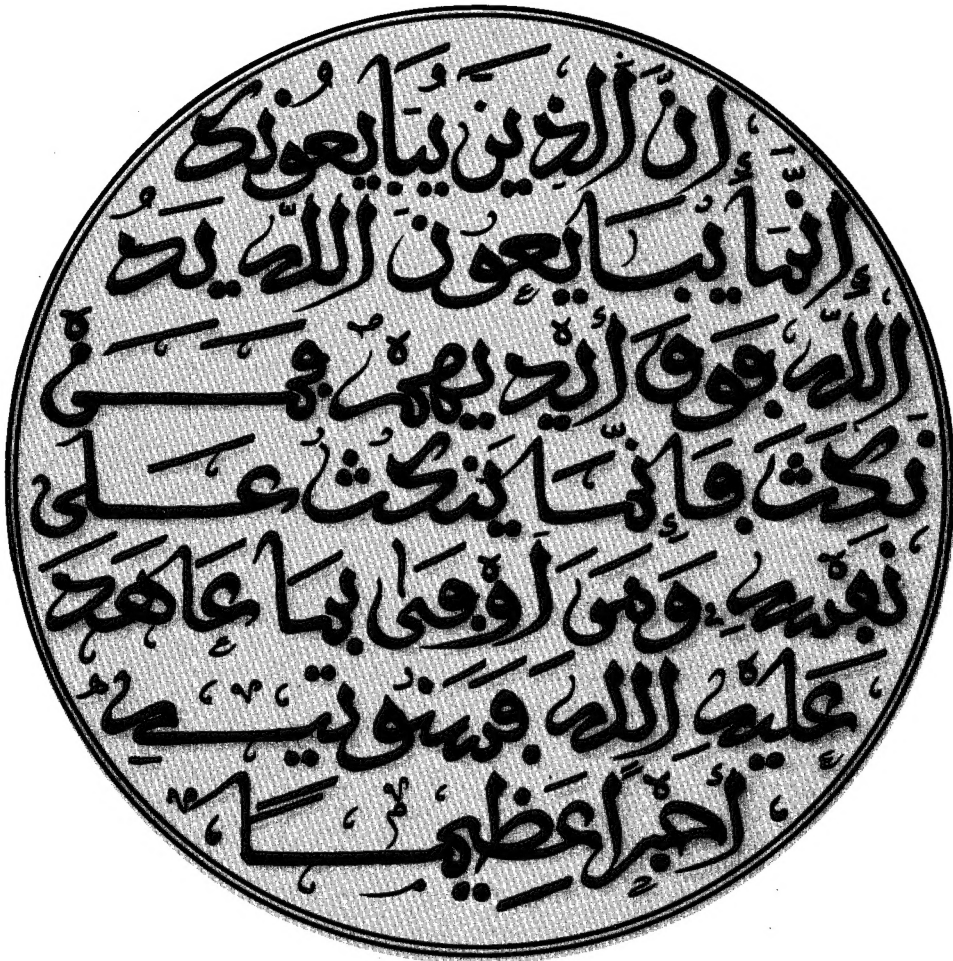 إِنَّ الذِينَ يُبَايِعُونَكَ
إِنَّمَا يُبَايِعُونَ اللَّهَ يَدُ
اللَّهِ فَوْقَ أَيْدِيهِمْ فَمَنْ
نَكَثَ فَإِنَّمَا يَنكُثُ عَلَى
نَفْسِهِ وَمَنَ اَوْفَى بِمَا عَاهَدَ
عَلَيْهِ اللَّهَ فَسَنُوتِيهِ
أَجْرًا عَظِيمًا